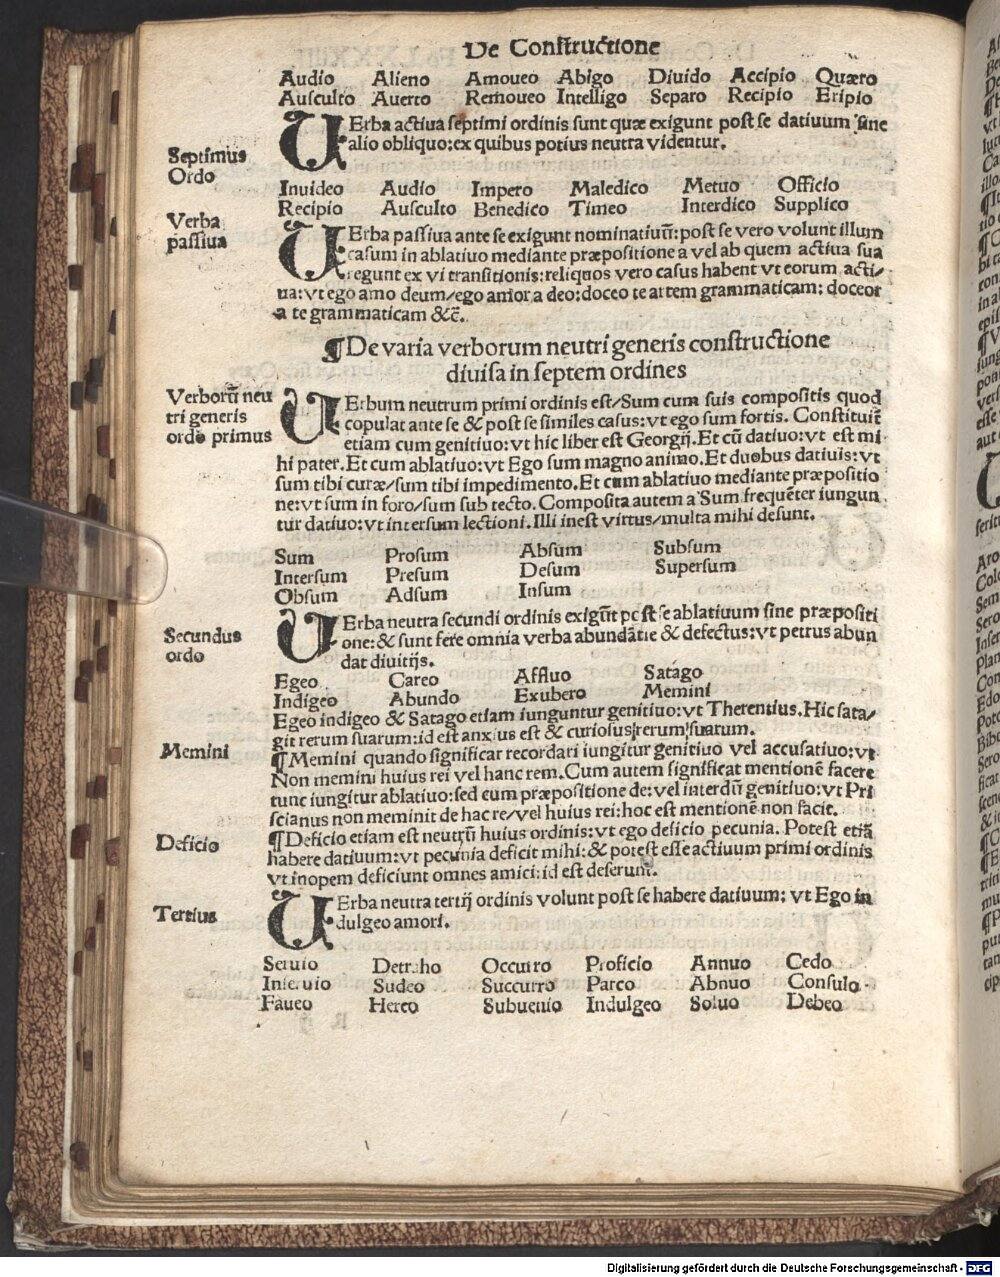 De Constructione
Audio Alieno Amoueo Abigo Diuido Accipio Quæro
Ausculto Auerto Remoueo Intelligo Separo Recipio Eripio
Septimus
Ordo
VErba actiua septimi ordinis sunt quæ exigunt post se datiuum sine
alio obliquo: ex quibus potius neutra videntur.
Inuideo Audio Impero Maledico Metuo Officio
Recipio Ausculto Benedico Timeo Interdico Supplico
Verba
passiua
VErba passiua ante se exigunt nominatiuũ: post se vero volunt illum
casum in ablatiuo mediante præpositione a vel ab quem actiua sua
regunt ex vi transitionis: reliquos vero casus habent vt eorum acti/
ua: vt ego amo deum/ego amor a deo: doceo te artem grammaticam: doceor
a te grammaticam &c̃.
¶De varia verborum neutri generis constructione
diuisa in septem ordines
Verborũ neu
tri generis
ordo primus
VErbum neutrum primi ordinis est/Sum cum suis compositis quod
copulat ante se & post se similes casus: vt ego sum fortis. Constituit̃
etiam cum genitiuo: vt hic liber est Georgij. Et cũ datiuo: vt est mi
hi pater. Et cum ablatiuo: vt Ego sum magno animo. Et duobus datiuis: vt
sum tibi curæ/sum tibi impedimento. Et cum ablatiuo mediante præpositio
ne: vt sum in foro/sum sub tecto. Composita autem a Sum frequẽter iungun
tur datiuo: vt intersum lectioni. Illi inest virtus/multa mihi desunt.
Sum Prosum Absum Subsum
Intersum Presum Desum Supersum
Obsum Adsum Insum
Secundus
ordo
VErba neutra secundi ordinis exigũt post se ablatiuum sine præpositi
one: & sunt fere omnia verba abundãtie & defectus: vt petrus abun
dat diuitijs.
Egeo Careo Affluo Satago
Indigeo Abundo Exubero Memini
Egeo indigeo & Satago etiam iunguntur genitiuo: vt Therentius. Hic sata/
git rerum suarum: id est anxius est & curiosus rerum suarum.
Memini
¶Memini quando significat recordari iungitur genitiuo vel accusatiuo: vt
Non memini huius rei vel hanc rem. Cum autem significat mentionẽ facere
tunc iungitur ablatiuo: sed cum præpositione de: vel interdũ genitiuo: vt Pri
scianus non meminit de hac re/vel huius rei: hoc est mentionẽ non facit.
Deficio
¶Deficio etiam est neutrũ huius ordinis: vt ego deficio pecunia. Potest etiã
habere datiuum: vt pecunia deficit mihi: & potest esse actiuum primi ordinis
vt inopem deficiunt omnes amici: id est deserunt.
Tertius
VErba neutra tertij ordinis volunt post se habere datiuum: vt Ego in
dulgeo amori.
Seruio Detraho Occurro Proficio Annuo Cedo
Inseruio Sudeo Succurro Parco Abnuo Consulo
Faueo Hereo Subuenio Indulgeo Soluo Debeo
Digitalisierung gefördert durch die Deutsche Forschungsgemeinschaft - DFG